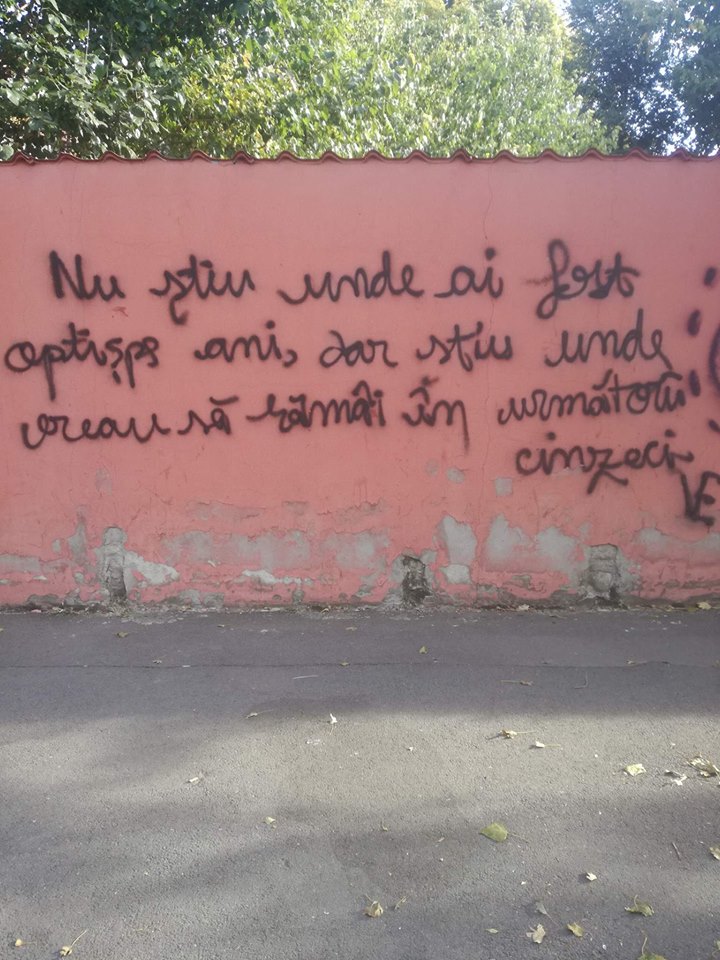 Nu știu unde ai fost
optișpe ani, dar știu unde
vreau să rămâi în următorii
cinzeci
VE